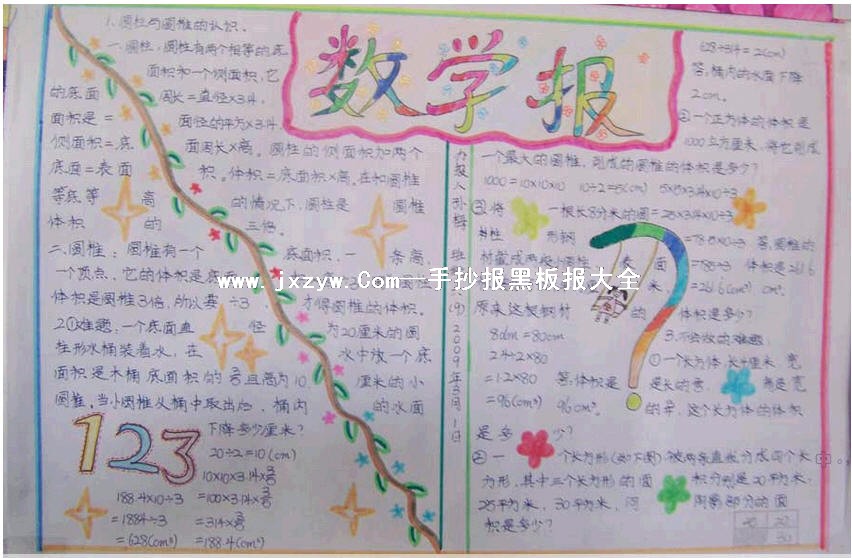 数学报
1.圆柱与圆椎的认识。
一.圆柱：圆柱有两个相等的底
面积和一个侧面积，它
的底面 周长=直径×3.14，
面积是= 面径的平方×3.14
侧面积=底 面周长×高。圆柱的侧面积加两个
底面=表面 积。体积=底面积×高。在和圆椎
等底等 高 的情况下，圆柱是 圆椎
体积 的 三倍。
二.圆椎：圆椎有一个 底面积，一 条高，
一个顶点。它的体积是
体积是圆椎3倍，所以要 ÷3 才得圆椎的体积。
2.①难题：一个底面直 径 为20厘米的圆
柱形水桶装着水，在 水中放一个底
面积是木桶底面积的 且高为10 厘米的小
圆椎，当小圆椎从桶中取出后，桶内 的水面
下降多少厘米？
123
20÷2=10(cm)
10×10×3.14×
188.4×10÷3 =100×3.14×
=1884÷3 =314×
=628(cm³) =188.4(cm²)
www.jxzyw.Com—手抄报黑板报大全
2009年3月1日
628÷314=2(cm)
答：桶内的水面下降
2cm。
②一个正方体的体积是
1000立方厘米，将它削成
一个最大的圆椎，削成的圆椎的体积是多少？
1000=10×10×10 10÷2=5(cm) 5×5×3.14×10÷3
③将 一根长8分米的圆 =25×3.14×10÷3
柱形 形钢 =78.5×10÷3 答：圆椎的
材截成两段小圆柱 米 面 =785÷3 体积是261.6
米， =261.6(cm³) cm³。
原来这根钢材 的 体积是多少？
8dm=80cm
2.4÷2×80
=1.2×80 答：体积是
=96(cm³) 96cm³。
3.不会做的难题：
①一个长方体，长4厘米，宽
是长的 高是宽
的 这个长方体的体积
是多 少？
②一 个长方形(如下图)，被两条直线分成四个长
方形，其中三个长方形的面 积分别是20平方米，
25平方米，30平方米，问 阴影部分的面
积是多少？
30